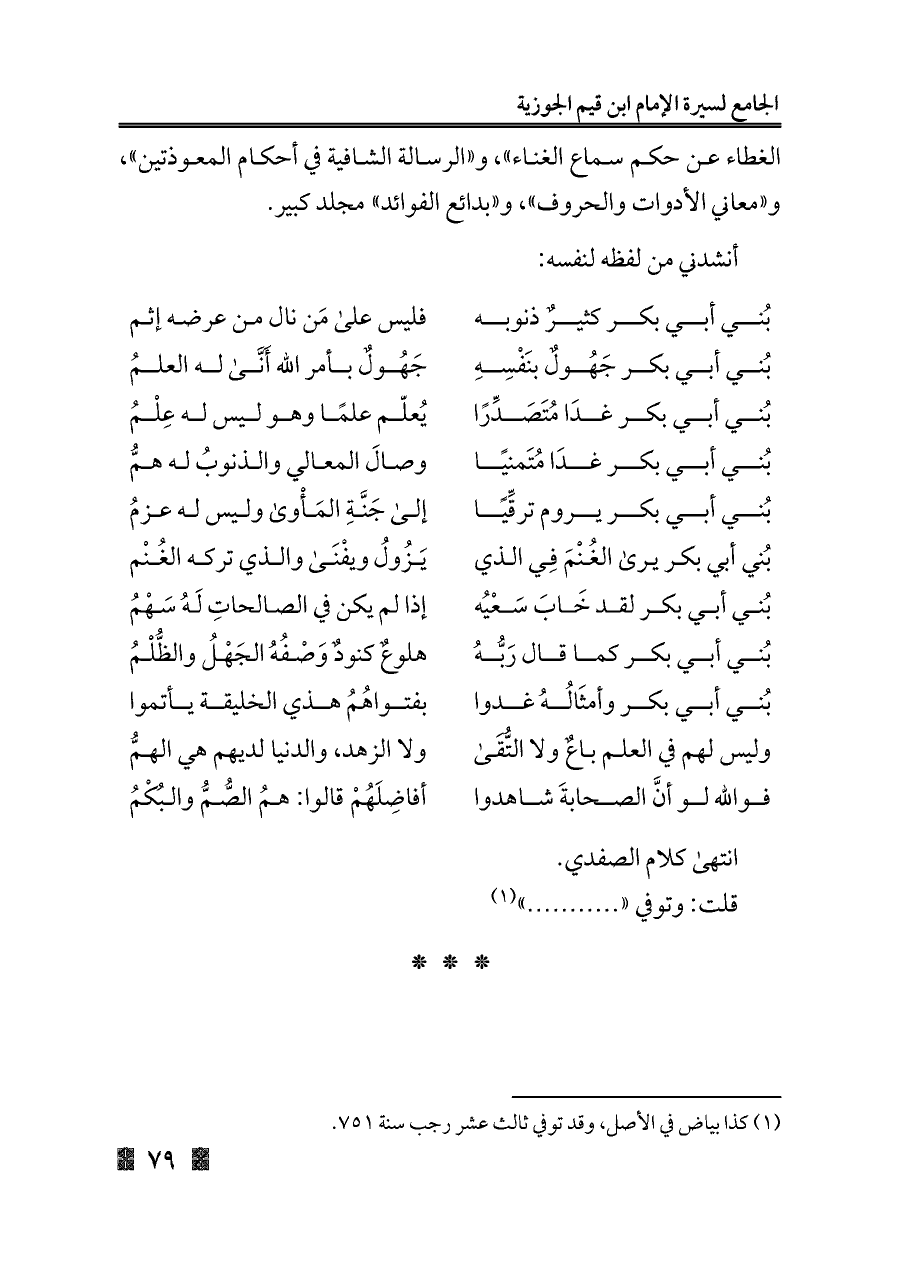 الجامع لسيرة الإمام ابن قيم الجوزية
الغطاء عن حكم سماع الغناء»، و«الرسالة الشافية في أحكام المعوذتين»،
و«معاني الأدوات والحروف»، و«بدائع الفوائد» مجلد كبير.
أنشدني من لفظه لنفسه:
بُني أبي بكر كثيرٌ ذنوبه فليس علىٰ مَن نال من عرضه إثم
بُني أبي بكر جَهُولٌ بنَفْسِهِ جَهُولٌ بأمر الله أَنَّىٰ له العلمُ
بُني أبي بكر غدَا مُتَصَدِّرًا يُعلّم علمًا وهو ليس له عِلْمُ
بُني أبي بكر غدَا مُتَمنيًا وصالَ المعالي والذنوبُ له همُّ
بُني أبي بكر يروم ترقِّيًا إلىٰ جَنَّةِ المَأْوىٰ وليس له عزمُ
بُني أبي بكر يرىٰ الغُنْمَ فِي الذي يَزُولُ ويفْنَىٰ والذي تركه الغُنْم
بُني أبي بكر لقد خَابَ سَعْيُه إذا لم يكن في الصالحاتِ لَهُ سَهْمُ
بُني أبي بكر كما قال رَبُّهُ هلوعٌ كنودٌ وَصْفُهُ الجَهْلُ والظُّلْمُ
بُني أبي بكر وأمثَالُهُ غدوا بفتواهُمُ هذي الخليقة يأتموا
وليس لهم في العلم باعٌ ولا التُّقَىٰ ولا الزهد، والدنيا لديهم هي الهمُّ
فوالله لو أنَّ الصحابةَ شاهدوا أفاضِلَهُمْ قالوا: همُ الصُّمُّ والبُكْمُ
انتهىٰ كلام الصفدي.
قلت: وتوفي «...........»(١)
* * *
(١) كذا بياض في الأصل، وقد توفي ثالث عشر رجب سنة ٧٥١.
٧٩